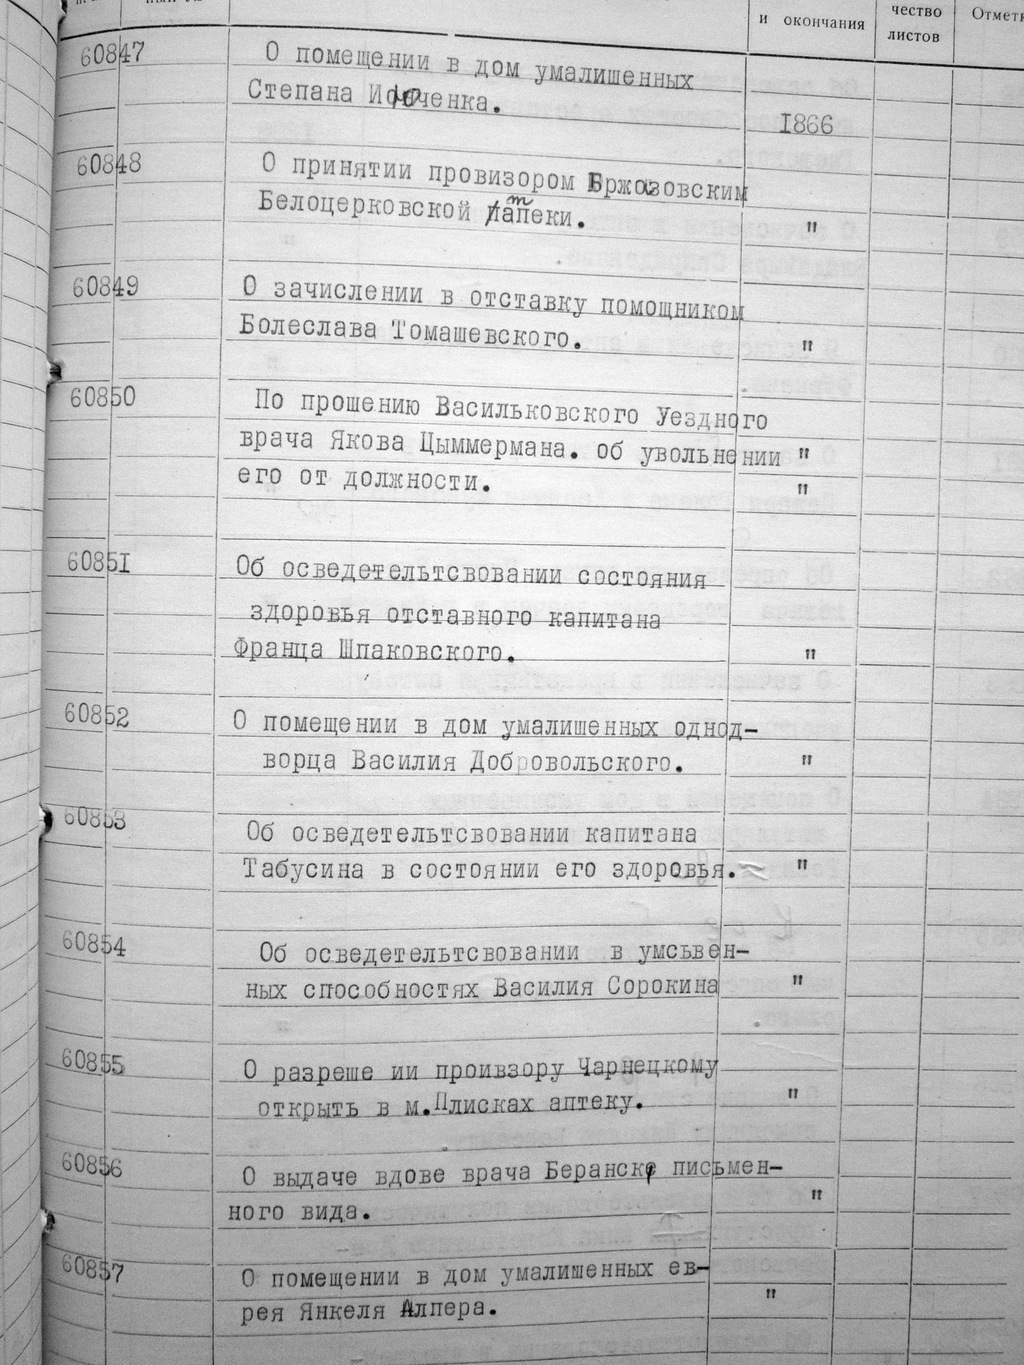 и окончания
чество
листов
60847
О помещении в дом умалишенных
Степана
1866
60848
О принятии провизором Бржозовским
Белоцерковской аптеки.
"
60849
О зачислении в отставку помощником
Болеслава Томашевского.
"
60850
По прошению Васильковского Уездного
врача Якова Цыммермана. об увольнении "
его от должности.
"
60851
Об осведетельтсвовании состояния
здоровья отставного капитана
Франца Шпаковского.
"
60852
О помещении в дом умалишенных однод-
ворца Василия Добровольского.
"
60853
Об осведетельтсвовании капитана
Табусина в состоянии его здоровья.
"
60854
Об осведетельтсвовании в умсьвен-
ных способностях Василия Сорокина
"
60855
О разреше ии проивзору Чарнецкому
открыть в м.Плисках аптеку.
"
60856
О выдаче вдове врача письмен-
ного вида.
"
60857
О помещении в дом умалишенных ев-
рея Янкеля Алпера.
"